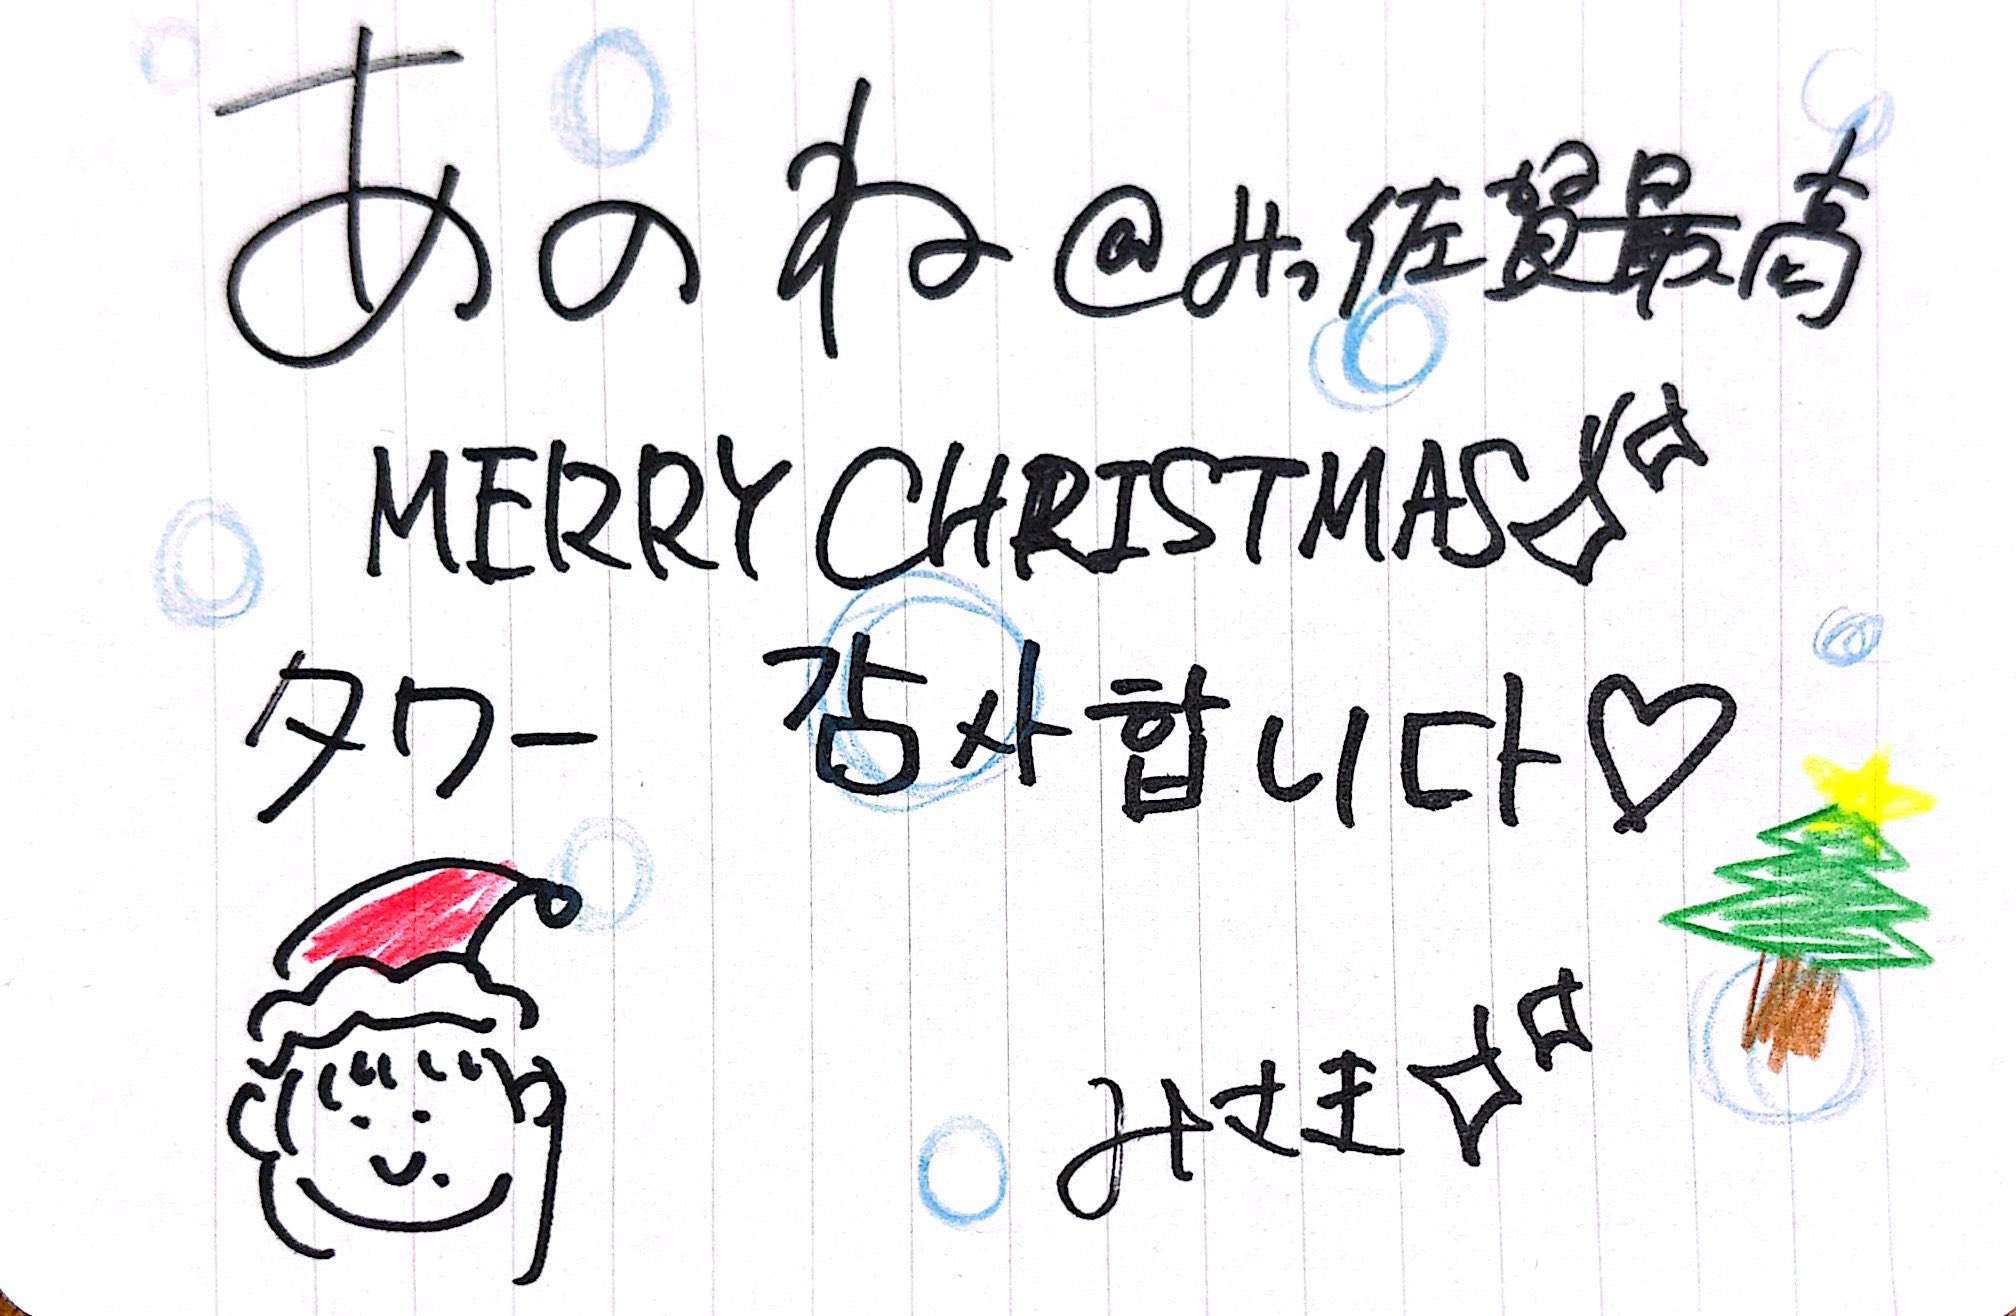 あのね@み、佐賀最高
MERRY CHRISTMAS
タワー 감사합니다♡
みさき